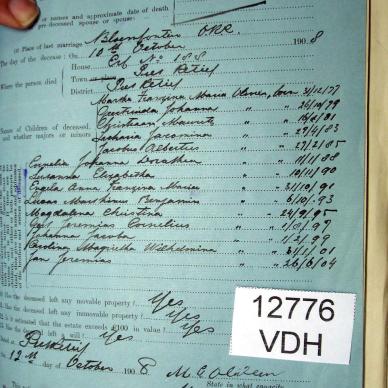 or names and approximate date of death
pre-deceased spouse or spouses
(c) Place of last marriage Bloemfontein ORR.
The day of the decease: On 10th October 1908
House Erf No 188
Where the person died Town Piet Retief
District Piet Retief
Martha Franzina Maria Olivier, born 31/12/77
Gertruida Johanna " " 26/10/79
Christiaan Mauritz " " 16/2/81
Names of Children of deceased,
and whether majors or minors
Jacomina " " 29/4/83
Jacobus Albertus " " 27/2/85
Cornelia Johanna Dorathea " " 11/1/88
Susanna Elizabetha " " 10/11/90
Engela Anna Franzina Maria " " 31/10/91
Lucas Marthinus Benjamin " " 6/10/93
Magdalena Christina " " 24/9/95
Jeremias Cornelius " " 97
Johanna " " 1/2/99
Carolina Magrietha Wilhelmina " " 01
Jan Jeremias " " 26/6/04
Has the deceased left any movable property? Yes
Has the deceased left any immovable property? Yes
Is it estimated that the estate exceeds £100 in value? Yes
Has the deceased left a will? Yes
Dated at Piet Retief
12th day of October 1908
State in what capacity
12776
VDH